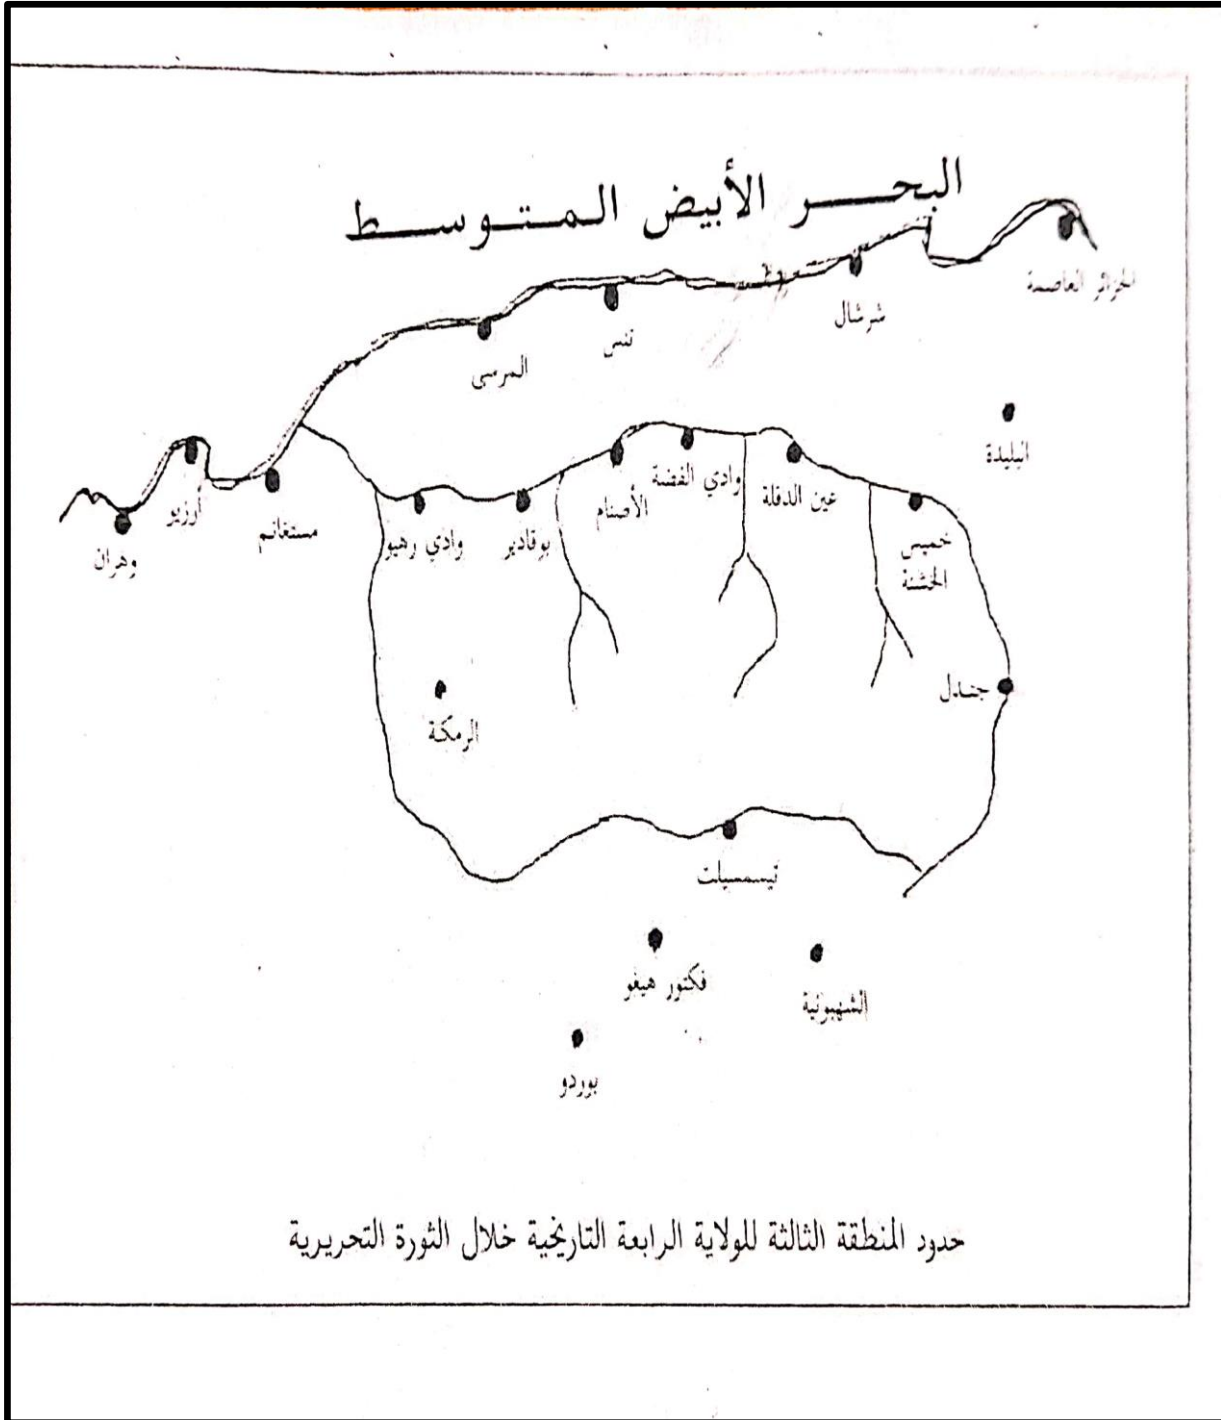 البحر الأبيض المتوسط
الجزائر العاصمة
شرشال
تنس
المرسى
البليدة
أرزيو
مستغانم
وهران
وادي رهيو
بوقادير
الأصنام
وادي الفضة
عين الدفلة
خميس
الخشنة
جندل
الرمكة
تيسمسيلت
فكتور هيغو
الشهبونية
بوردو
حدود المنطقة الثالثة للولاية الرابعة التاريخية خلال الثورة التحريرية